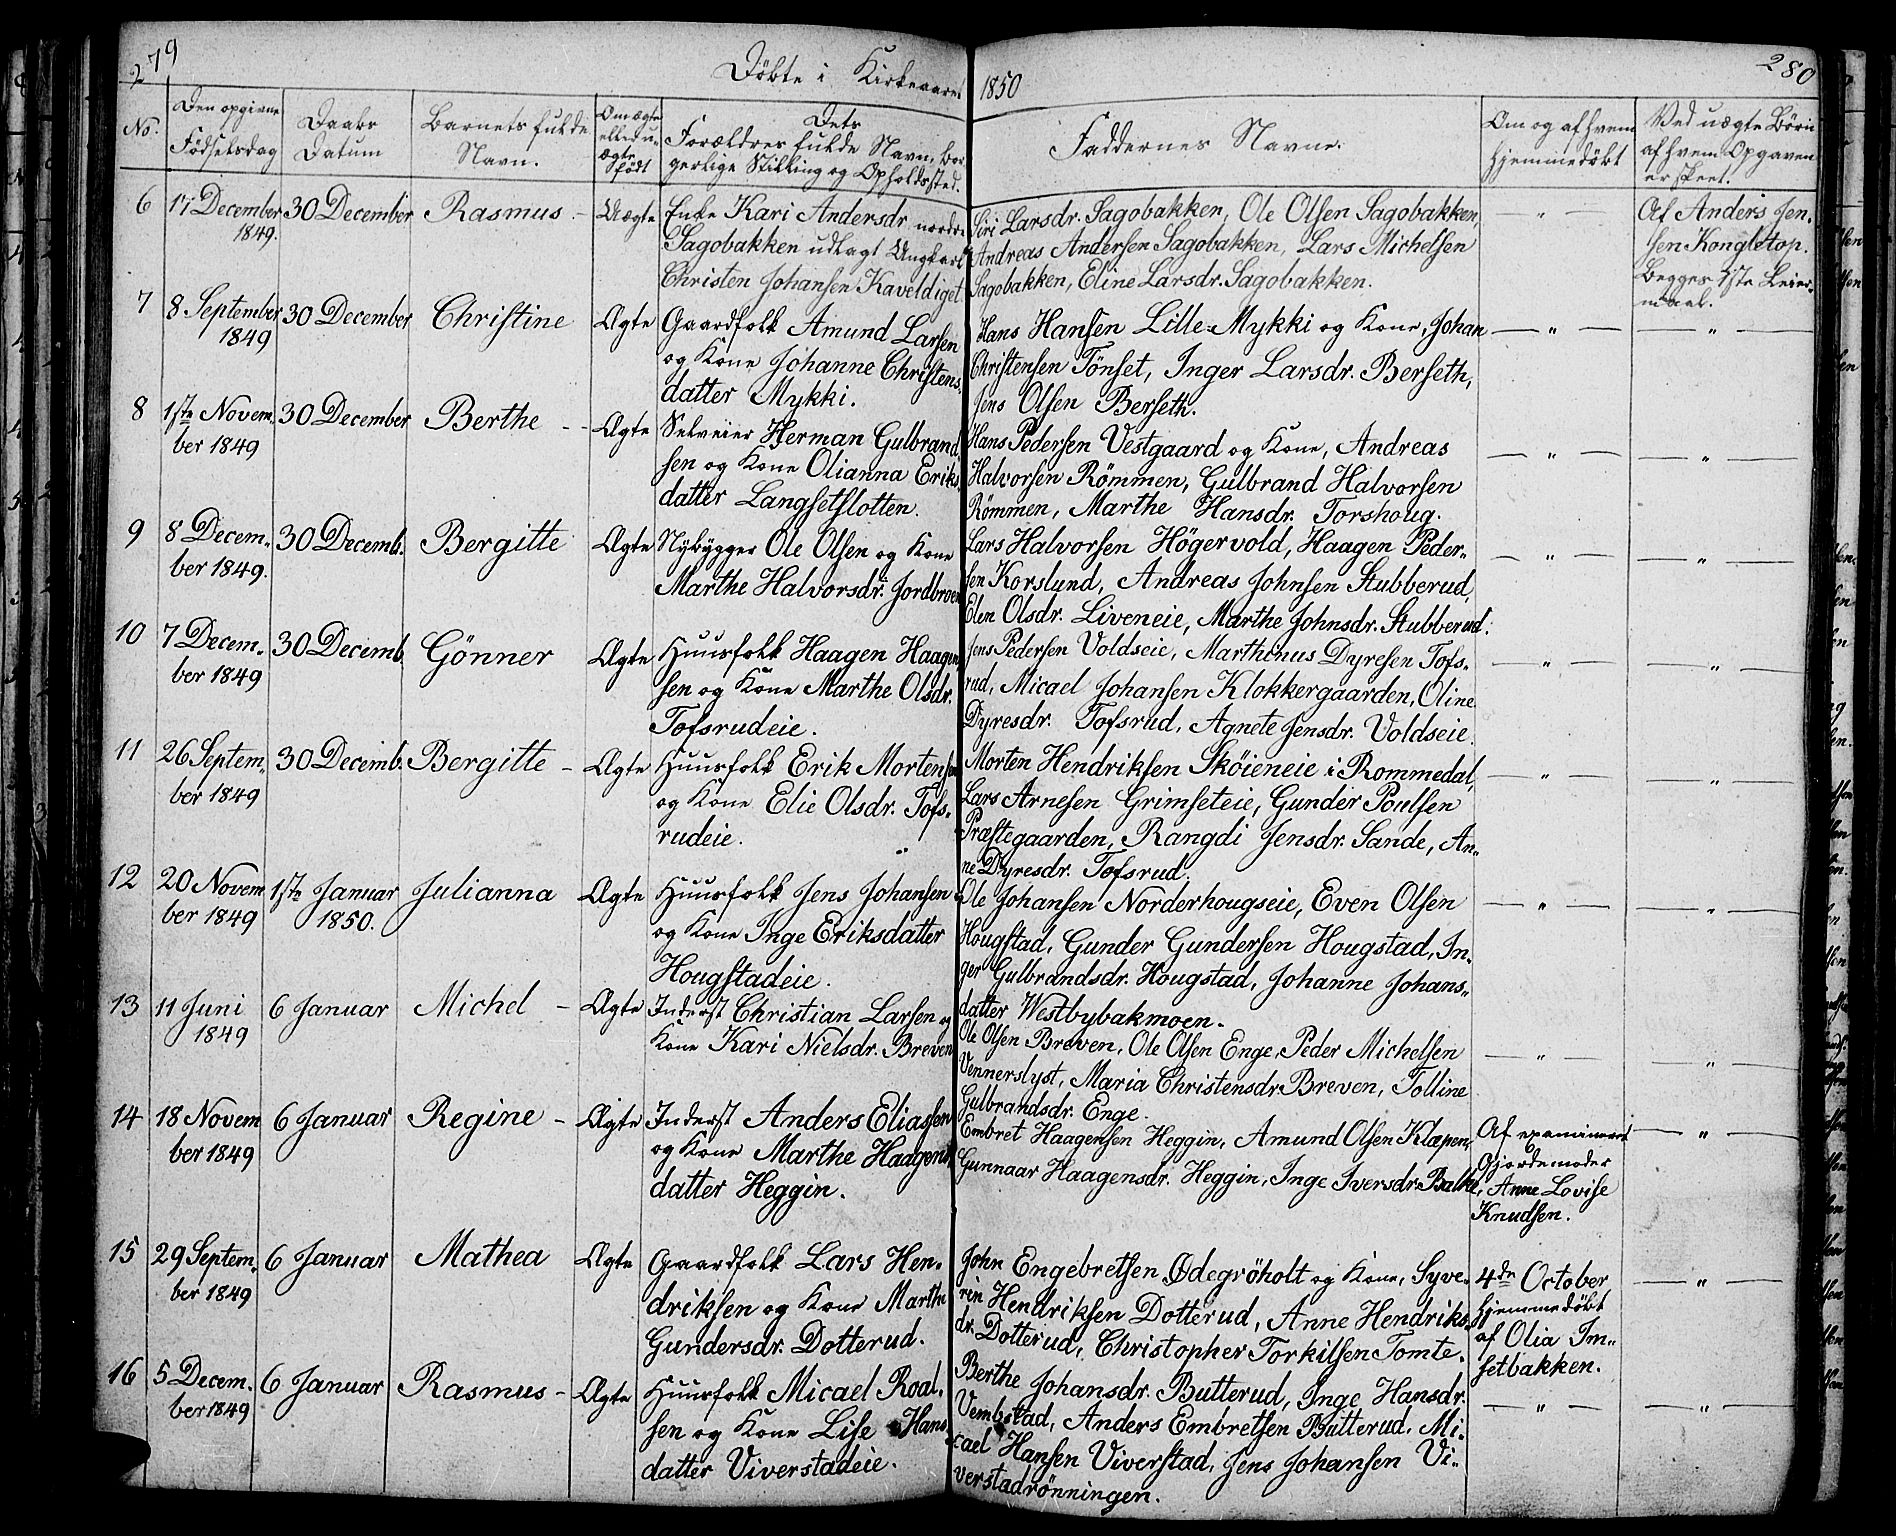 279
Döbte i Kirkeaaret 1850
280
No.
Den opgivne
Födselsdag
Daabs
Datum
Barnets fulde
Navn.
Om ægte
eller u-
ægte
födt
Dets
Forældres fulde Navn, bor-
gerlige Stilling og Opholdssted.
Faddernes Navne.
Om og af hvem
hjemmedöbt
Ved uægte Börn
af hvem Opgaven
er skeet.
6
17 December
1849.
30 December
Rasmus -
Uægte
Enke Kari Andersdr nordre
Sagobakken udlagt Ungkarl
Christen Johansen Kaveldiget
Siri Larsdr. Sagobakken, Ole Olsen Sagobakken,
Andreas Andersen Sagobakken, Lars Michelsen
Sagobakken, Eline Larsdr. Sagobakken.
— " —
Af Anders Jen-
sen Kongletop.
Begges 1ste Leier-
maal.
7
8 September
1849
30 December
Christine
Ægte
Gaardfolk Amund Larsen
og Kone Johanne Christens
datter Mykki.
Hans Hansen Lille-Mykki og Kone, Johan
Christensen Tönset, Inger Larsdr. Berseth,
Jens Olsen Berseth.
— " —
— " —
8
1ste Novem-
ber 1849
30 December
Berthe - -
Ægte
Selveier Herman Gulbrand
sen og Kone Olianna Eriks
datter Langsetslotten.
Hans Pedersen Vestgaard og Kone, Andreas
Halvorsen Römmen, Gulbrand Halvorsen
Römmen, Marthe Hansdr. Torshoug.
— " —
— " —
9
8 Decem-
ber 1849.
30 Decemb.
Bergitte
Ægte
Nybygger Ole Olsen og Kone
Marthe Halvorsdr. Jordbroen
Lars Halvorsen Högervold, Haagen Peder-
sen Korslund, Andreas Johnsen Stubberud,
Elen Olsdr. Liveneie, Marthe Johnsdr. Stubberud.
— " —
— " —
10
7 Decem-
ber 1849
30 Decemb.
Gönner
Ægte
Huusfolk Haagen Haagen
sen og Kone Marthe Olsdr.
Tofsrudeie.
Jens Pedersen Voldseie, Marthinus Dyresen Tofs-
rud, Micael Johansen Klokkergaarden, Oline
Dyresdr. Tofsrud, Agnete Jensdr. Voldseie.
— " —
— " —
11
26 Septem-
ber 1849
30 Decemb.
Bergitte -
Ægte
Huusfolk Erik Mortensen
og Kone Elie Olsdr. Tofs-
rudeie.
Morten Hendriksen Sköieneie i Rommedal,
Lars Arnesen Grimseteie, Gunder Poulsen
Præstegaarden, Rangdi Jensdr. Sande, An-
ne Dyresdr. Tofsrud.
— " —
— " —
12
20 Novem
ber 1849
1ste Januar
1850.
Julianna
Ægte
Huusfolk Jens Johansen
og Kone Inge Eriksdatter
Hougstadeie.
Ole Johansen Norderhougseie, Even Olsen
Hougstad, Gunder Gundersen Hougstad, In-
ger Gulbrandsdr. Hougstad, Johanne Johans-
datter Westbybakmoen.
— " —
— " —
13
11 Juni
1849
6 Januar
Michel -
Ægte
Inderst Christian Larsen og
Kone Kari Nielsdr. Breven
Ole Olsen Breven, Ole Olsen Enge, Peder Michelsen
Vennerslyst, Maria Christensdr. Breven, Tolline
Gulbrandsdr. Enge.
— " —
— " —
14
18 Novem
ber 1849
6 Januar
Regine -
Ægte
Inderst Anders Eliassen
og Kone Marthe Haagens
datter Heggin.
Embret Haagensen Heggin, Amund Olsen Klæpen,
Gunnaar Haagensdr. Heggin, Inge Iversdr. Balke,
Af examineret
Gjordemoder
Anne Lovise
Knudsen.
— " —
15
29 Septem-
ber 1849
6 Januar
Mathea
Ægte
Gaardfolk Lars Hen-
driksen og Kone Marthe
Gundersdr. Dotterud.
John Engebretsen Ödegröholt og Kone, Syve-
rin Hendriksen Dotterud, Anne Hendriks
dr. Dotterud, Christopher Torkilsen Tomte.
4de October
hjemmedöbt
af Olia Im-
setbakken.
— " —
16
5 Decem-
ber 1849
6 Januar
Rasmus -
Ægte
Huusfolk Micael Roal-
sen og Kone Lise Hans
datter Viverstadeie.
Berthe Johansdr. Butterud, Inge Hansdr.
Vembstad, Anders Embretsen Butterud, Mi-
cael Hansen Viverstad, Jens Johansen Vi-
verstadrönningen.
— " —
— " —